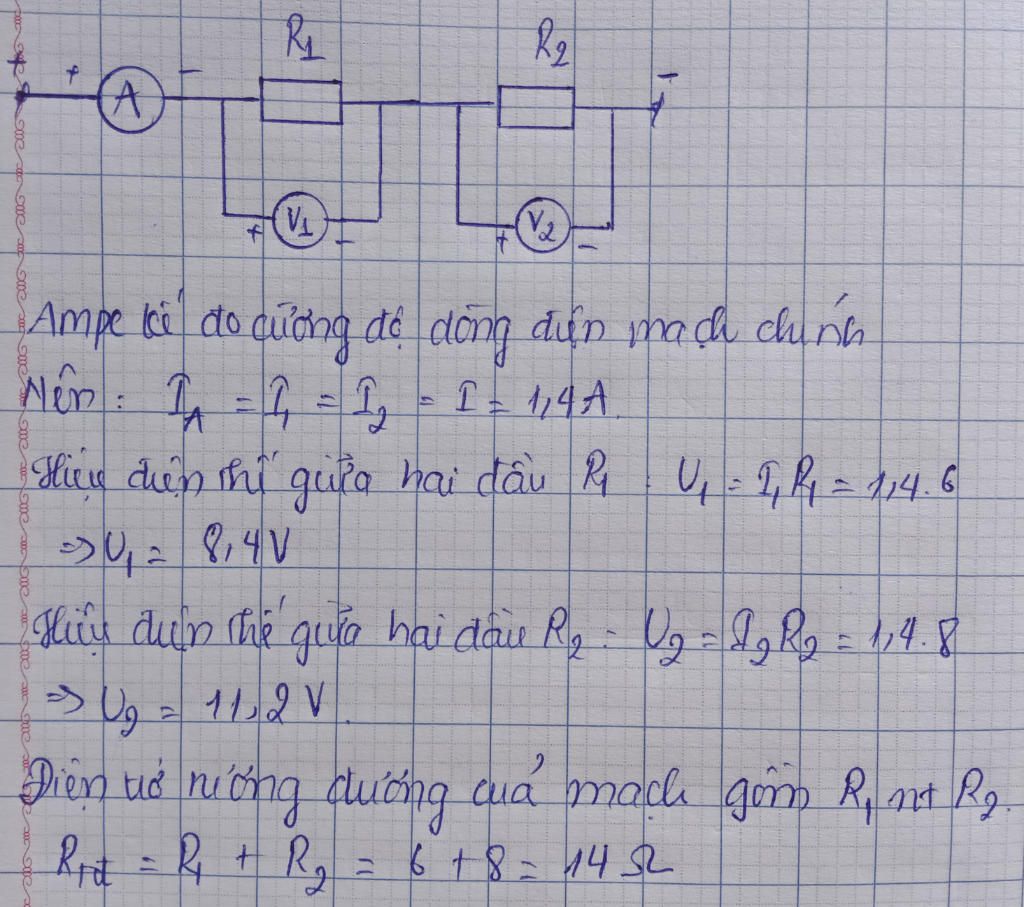 R1 R2
+ + A - -
+ V1 - + V2 -
Ampe kế đo cường độ dòng điện mạch chính
Nên : I_A = I_1 = I_2 = I = 1,4A.
Hiệu điện thế giữa hai đầu R_1 : U_1 = I_1R_1 = 1,4.6
=> U_1 = 8,4V
Hiệu điện thế giữa hai đầu R_2 : U_2 = I_2R_2 = 1,4.8
=> U_2 = 11,2V.
Điện trở tương đương của mạch gồm R_1 nt R_2.
R_tđ = R_1 + R_2 = 6 + 8 = 14Ω